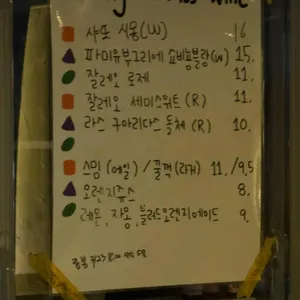 wine
샤또 시몽 (W) 16
파미유부그리에 쇼비뇽블랑(W) 15,
잘레오 로제 11,
잘레오 세미스위트 (R) 11,
라스 구아리다스 돌체 (R) 10,
스밈 (에일) / 꿀꺽 (라거) 11, / 9,5
오렌지쥬스 8,
레몬, 자몽, 블러드오렌지에이드 9,